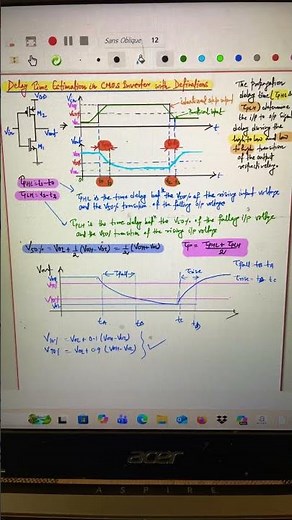 Sans Oblique 12
Delay Time Estimation in CMOS Inverter with Definations
VDD
M2
Vin
Vout
M1
Vin
VOH
V50%
VOL
idealized step input
t
Vout
VOH
V50%
VOL
t
The propagation
delay time
determine
the i/p to o/p
delay during the
high to low and low
to high transition
of the output
respectively.
τPHL = t1-t0
τPLH = t3-t2
τPHL is the time delay b/w the V50% of the rising input voltage
and the V50% transition of the falling o/p voltage
τPLH is the time delay b/w the V50% of the falling i/p voltage
and the V50% transition of the rising o/p voltage
V50% = VOL + 1/2 (VOH-VOL) = 1/2 (VOH+VOL)
τP = τPHL + τPLH / 2
Vout
τfall
τrise
τfall = tB-tA
τrise = tD-tC
tA tB tC tD
t
V10% = VOL + 0.1 (VOH-VOL)
V90% = VOL + 0.9 (VOH-VOL)
acer
ASPIRE